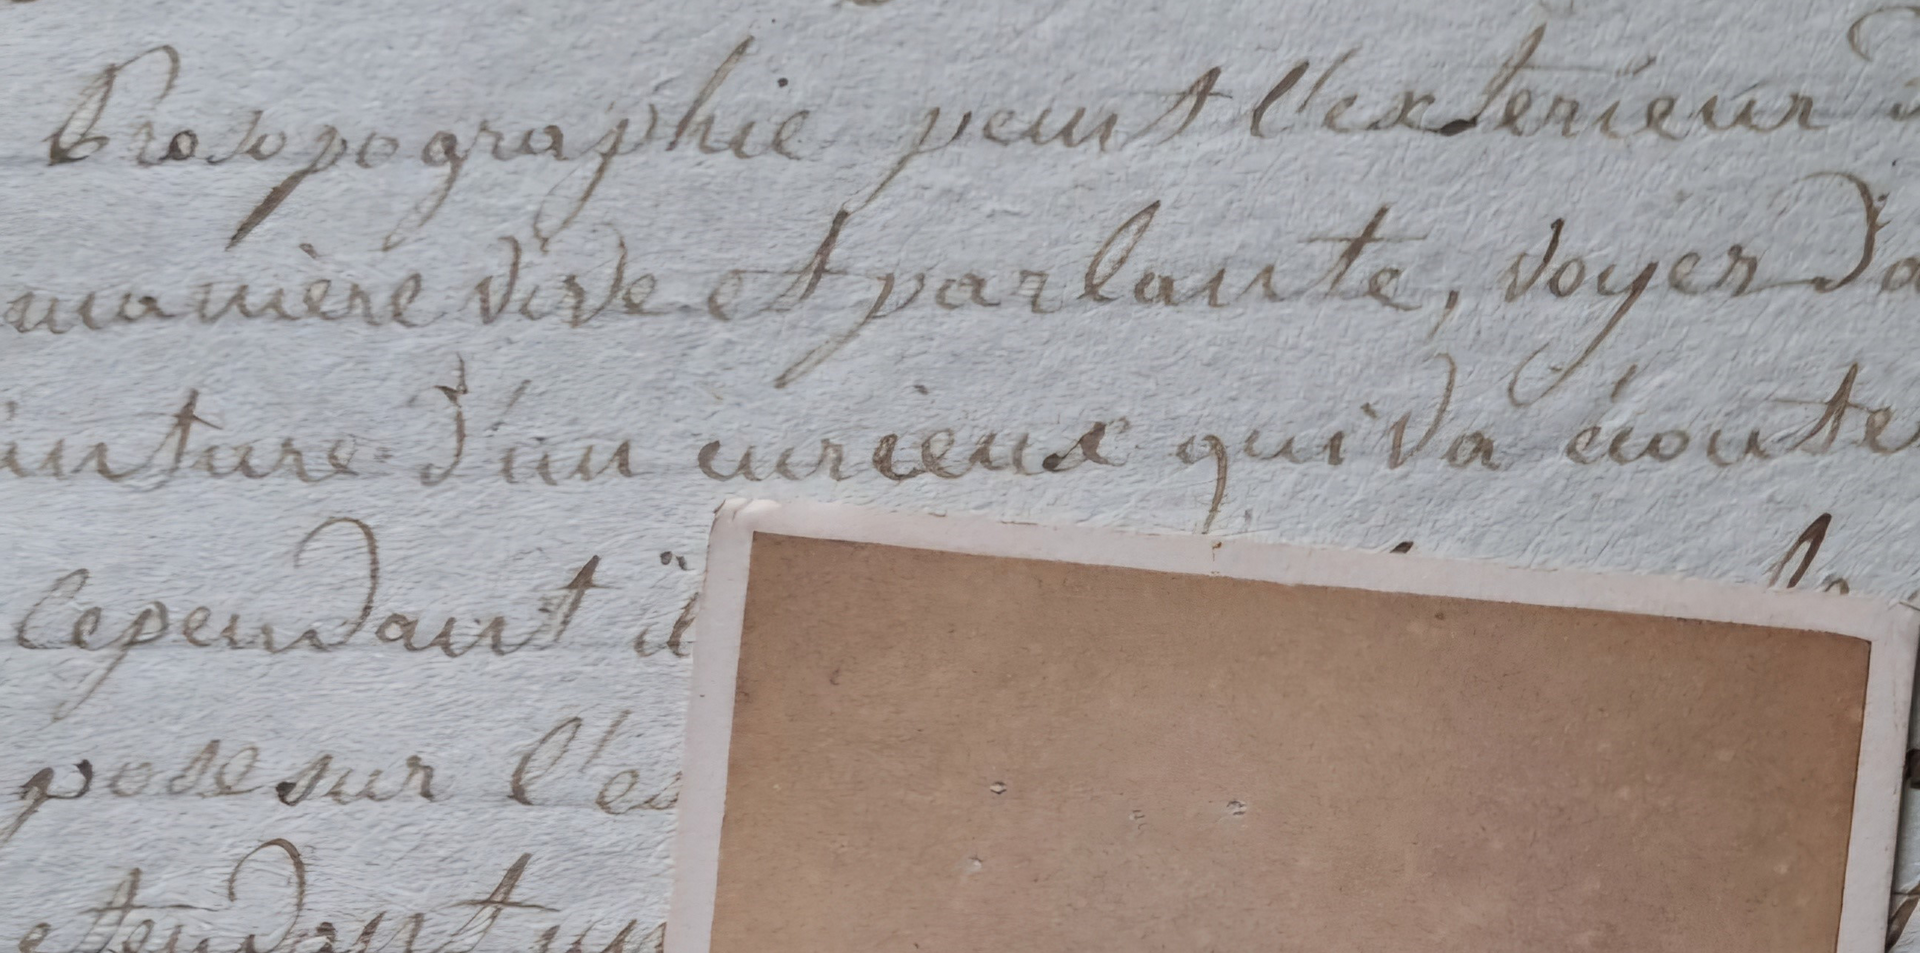 Prosopographie peint l'extérieur
manière vive et parlante, voyez da
inture d'un curieux qui va écoute
Cependant il
pose sur l'es
etendant un